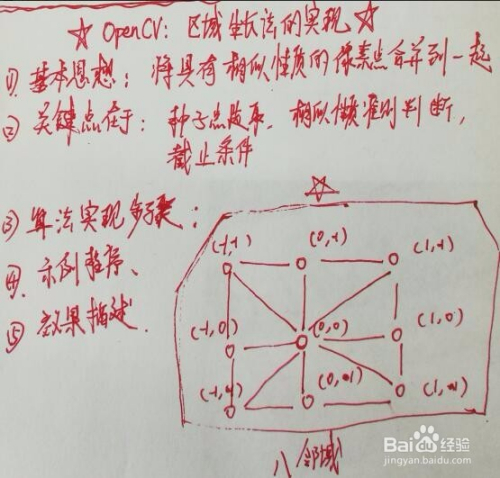 ☆ OpenCV: 区域生长法的实现 ☆
① 基本思想: 将具有相似性质的像素点合并到一起
② 关键点在于: 种子点选取、相似性准则判断,
截止条件
☆
③ 算法实现步骤:
④、示例程序、
⑤ 效果描述、
(-1,-1) (0,-1) (1,-1)
(-1,0) (0,0) (1,0)
(-1, (0, (1,
八邻域
Baidu经验
jingyan.baidu.com